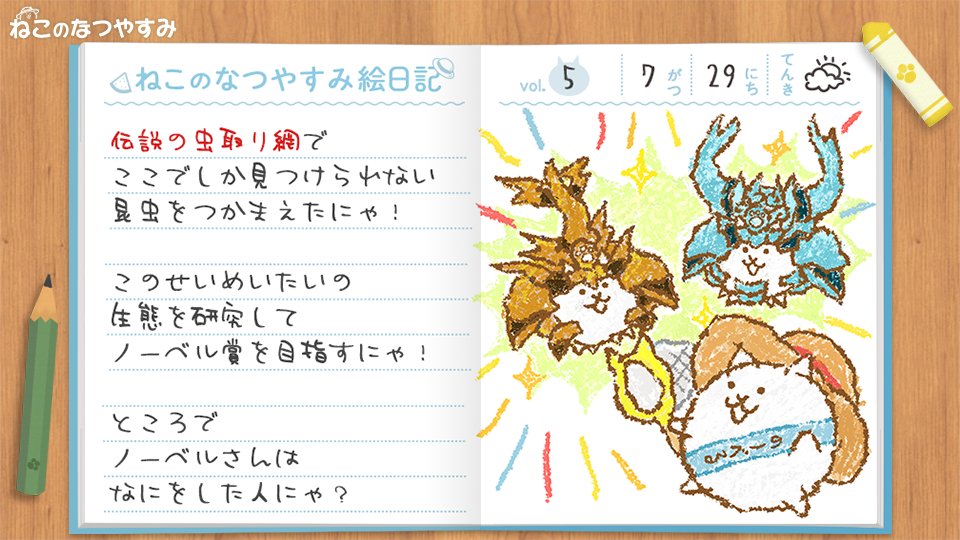 ねこのなつやすみ
ねこのなつやすみ絵日記
vol. 5 7 がつ 29 にち てんき
伝説の虫取り網で
ここでしか見つけられない
昆虫をつかまえたにゃ！
このせいめいたいの
生態を研究して
ノーベル賞を目指すにゃ！
ところで
ノーベルさんは
なにをした人にゃ？